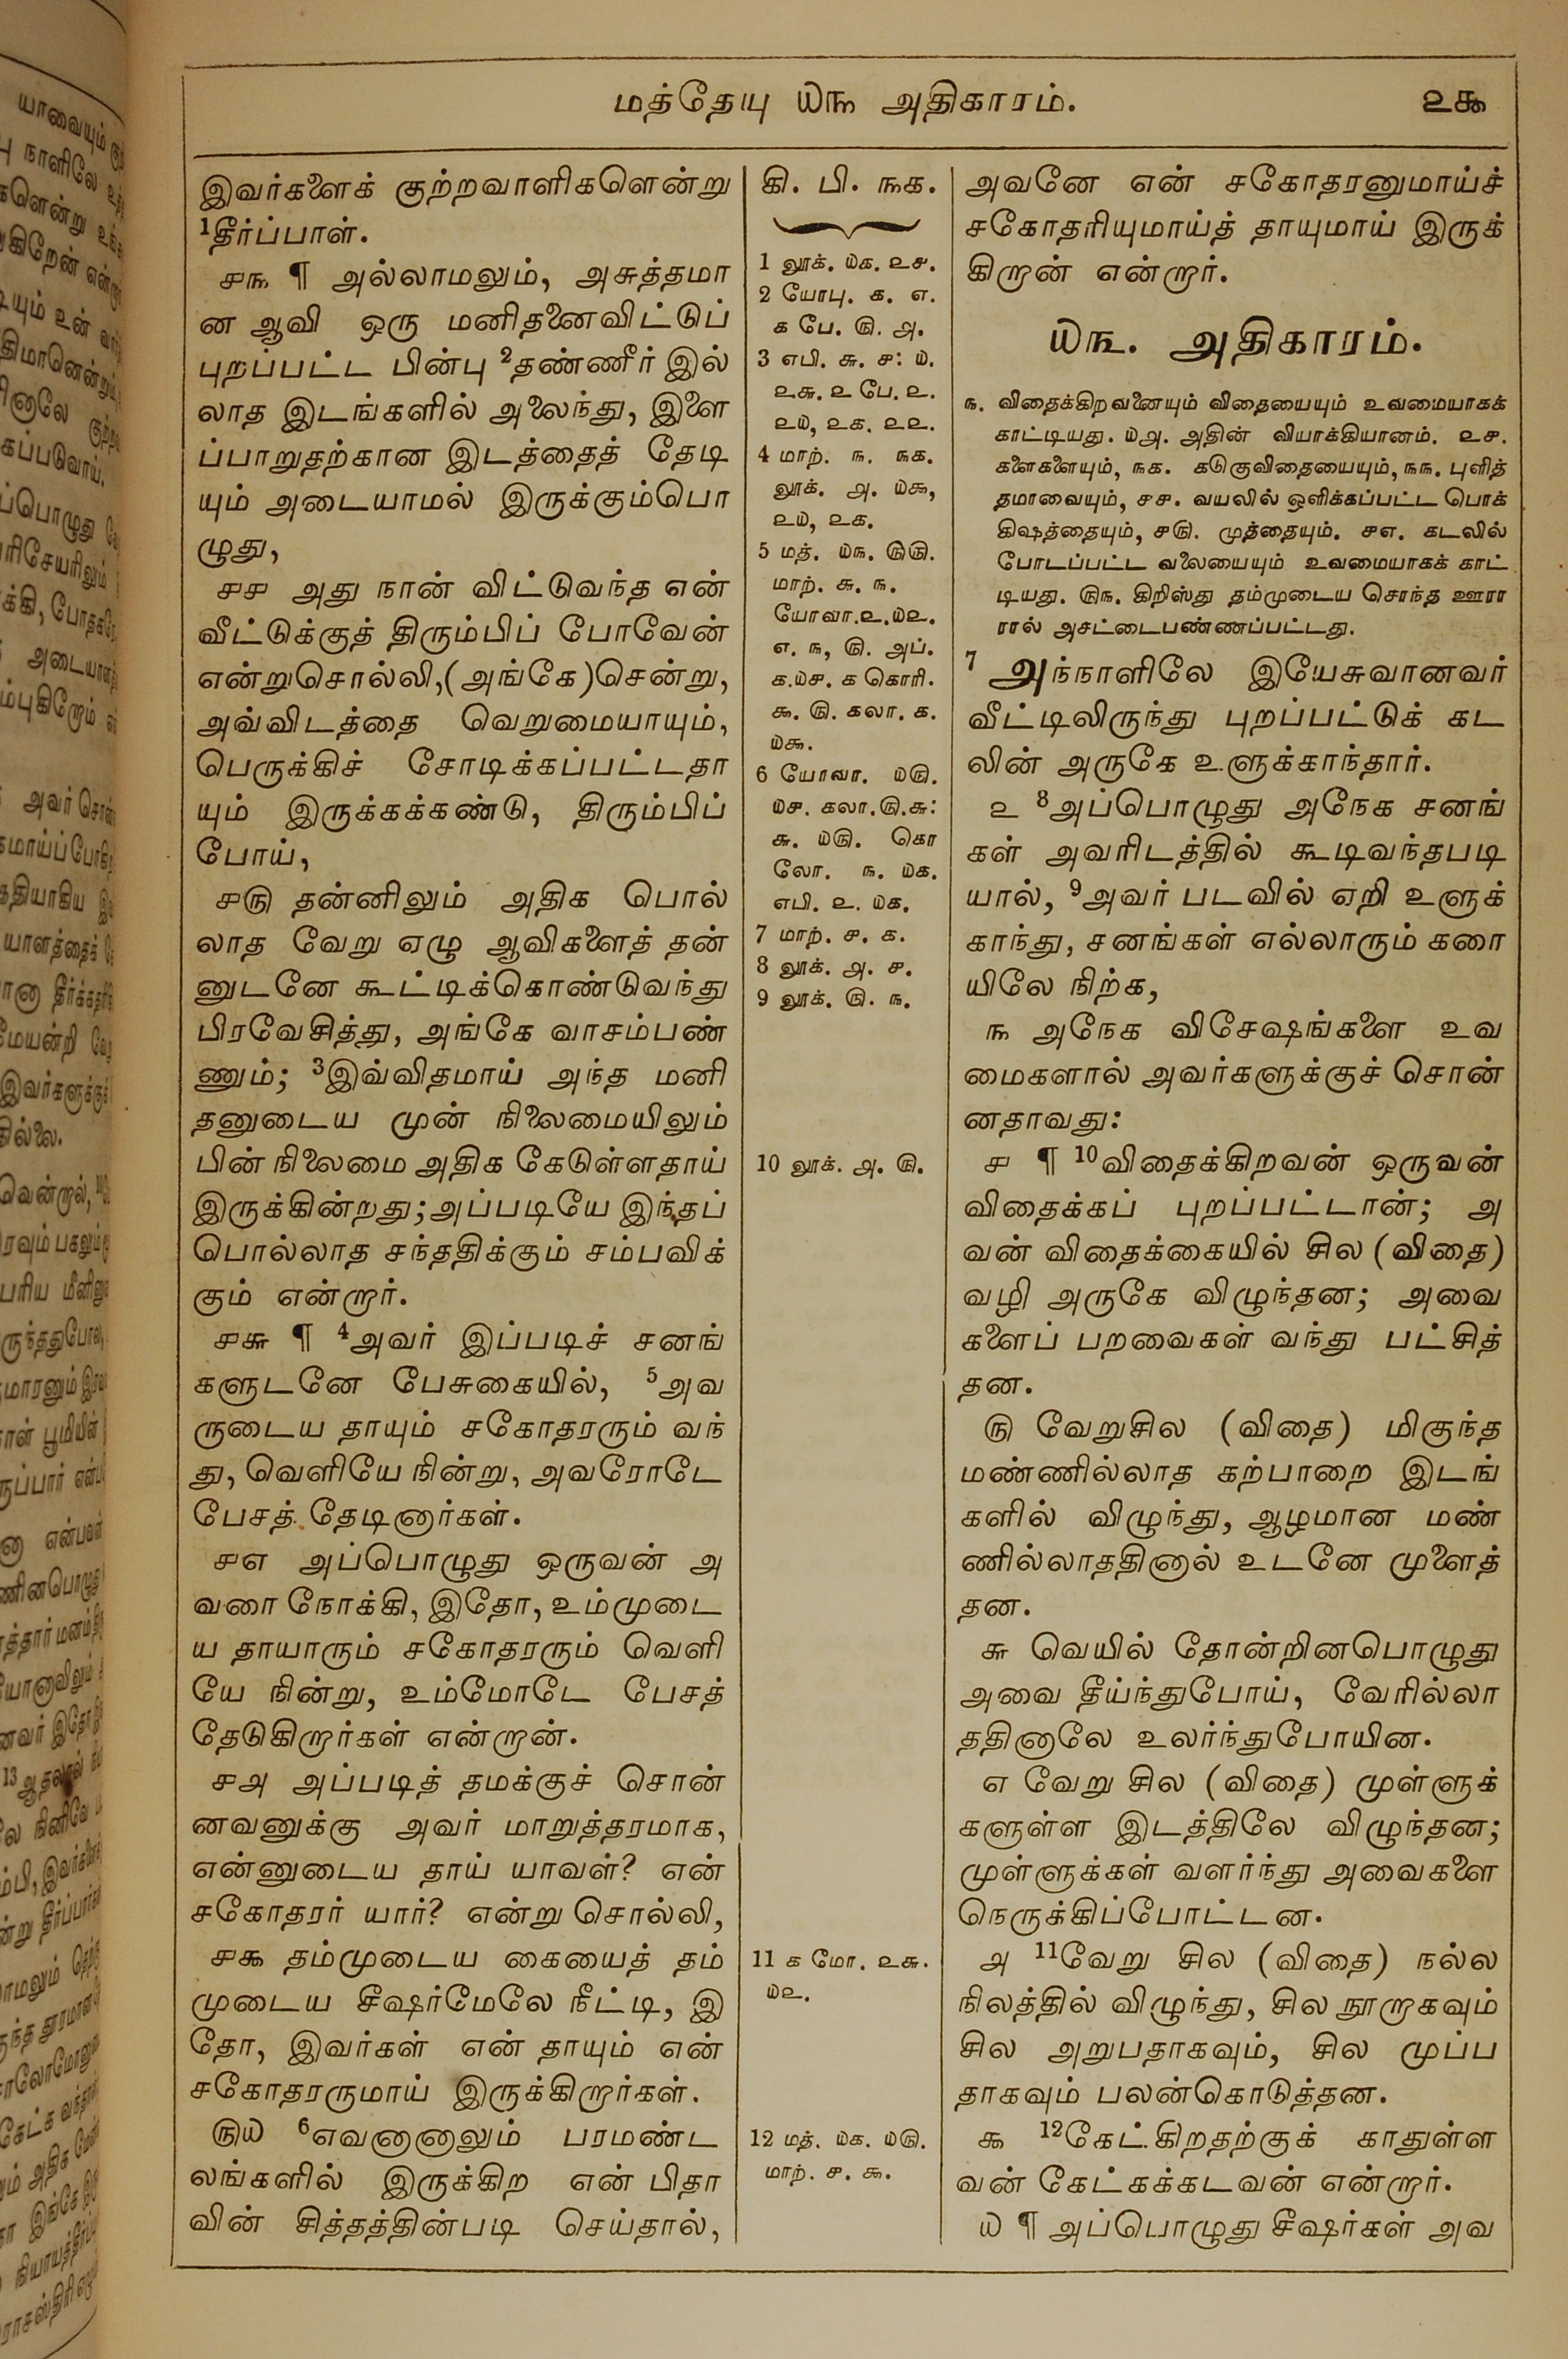 மத்தேயு ௰௩ அதிகாரம். ௨௯
இவர்களைக் குற்றவாளிகளென்று
¹தீர்ப்பாள்.
௪௩ ¶ அல்லாமலும், அசுத்தமா
ன ஆவி ஒரு மனிதனைவிட்டுப்
புறப்பட்ட பின்பு ²தண்ணீர் இல்
லாத இடங்களில் அலைந்து, இளை
ப்பாறுதற்கான இடத்தைத் தேடி
யும் அடையாமல் இருக்கும்பொ
ழுது,
௪௪ அது நான் விட்டுவந்த என்
வீட்டுக்குத் திரும்பிப் போவேன்
என்றுசொல்லி,(அங்கே)சென்று,
அவ்விடத்தை வெறுமையாயும்,
பெருக்கிச் சோடிக்கப்பட்டதா
யும் இருக்கக்கண்டு, திரும்பிப்
போய்,
௪௫ தன்னிலும் அதிக பொல்
லாத வேறு ஏழு ஆவிகளைத் தன்
னுடனே கூட்டிக்கொண்டுவந்து
பிரவேசித்து, அங்கே வாசம்பண்
ணும்; ³இவ்விதமாய் அந்த மனி
தனுடைய முன் நிலைமையிலும்
பின் நிலைமை அதிக கேடுள்ளதாய்
இருக்கின்றது;அப்படியே இந்தப்
பொல்லாத சந்ததிக்கும் சம்பவிக்
கும் என்றார்.
௪௬ ¶ ⁴அவர் இப்படிச் சனங்
களுடனே பேசுகையில், ⁵அவ
ருடைய தாயும் சகோதரரும் வந்
து, வெளியே நின்று, அவரோடே
பேசத் தேடினார்கள்.
௪௭ அப்பொழுது ஒருவன் அ
வரை நோக்கி, இதோ, உம்முடை
ய தாயாரும் சகோதரரும் வெளி
யே நின்று, உம்மோடே பேசத்
தேடுகிறார்கள் என்றான்.
௪௮ அப்படித் தமக்குச் சொன்
னவனுக்கு அவர் மாறுத்தரமாக,
என்னுடைய தாய் யாவள்? என்
சகோதரர் யார்? என்று சொல்லி,
௪௯ தம்முடைய கையைத் தம்
முடைய சீஷர்மேலே நீட்டி, இ
தோ, இவர்கள் என் தாயும் என்
சகோதரருமாய் இருக்கிறார்கள்.
௫௰ ⁶எவனானாலும் பரமண்ட
லங்களில் இருக்கிற என் பிதா
வின் சித்தத்தின்படி செய்தால்,
கி. பி. ௩௧.
1 லூக். ௰௧. ௨௪.
2 யோபு. ௧. ௭.
௧ பே. ௫. ௮.
3 எபி. ௬. ௪: ௰.
௨௬. ௨ பே. ௨.
௨௰, ௨௧. ௨௨.
4 மாற். ௩. ௩௧.
லூக். ௮. ௰௯,
௨௰, ௨௧.
5 மத். ௰௩. ௫௫.
மாற். ௬. ௩.
யோவா.௨.௰௨.
௭. ௩, ௫. அப்.
௧.௰௪. ௧ கொரி.
௯. ௫. கலா. ௧.
௰௯.
6 யோவா. ௰௫.
௰௪. கலா.௫.௬:
௬. ௰௫. கொ
லோ. ௩. ௰௧.
எபி. ௨. ௰௧.
7 மாற். ௪. ௧.
8 லூக். ௮. ௪.
9 லூக். ௫. ௩.
10 லூக். ௮. ௫.
11 ௧ மோ. ௨௬.
௰௨.
12 மத். ௰௧. ௰௫.
மாற். ௪. ௯.
அவனே என் சகோதரனுமாய்ச்
சகோதரியுமாய்த் தாயுமாய் இருக்
கிறான் என்றார்.
௰௩. அதிகாரம்.
௩. விதைக்கிறவனையும் விதையையும் உவமையாகக்
காட்டியது. ௰௮. அதின் வியாக்கியானம். ௨௪.
களைகளையும், ௩௧. கடுகுவிதையையும், ௩௩. புளித்
தமாவையும், ௪௪. வயலில் ஒளிக்கப்பட்ட பொக்
கிஷத்தையும், ௪௫. முத்தையும். ௪௭. கடலில்
போடப்பட்ட வலையையும் உவமையாகக் காட்
டியது. ௫௩. கிறிஸ்து தம்முடைய சொந்த ஊரா
ரால் அசட்டைபண்ணப்பட்டது.
⁷ அந்நாளிலே இயேசுவானவர்
வீட்டிலிருந்து புறப்பட்டுக் கட
லின் அருகே உளுக்காந்தார்.
௨ ⁸அப்பொழுது அநேக சனங்
கள் அவரிடத்தில் கூடிவந்தபடி
யால், ⁹அவர் படவில் ஏறி உளுக்
காந்து, சனங்கள் எல்லாரும் கரை
யிலே நிற்க,
௩ அநேக விசேஷங்களை உவ
மைகளால் அவர்களுக்குச் சொன்
னதாவது:
௪ ¶ ¹⁰விதைக்கிறவன் ஒருவன்
விதைக்கப் புறப்பட்டான்; அ
வன் விதைக்கையில் சில (விதை)
வழி அருகே விழுந்தன; அவை
களைப் பறவைகள் வந்து பட்சித்
தன.
௫ வேறுசில (விதை) மிகுந்த
மண்ணில்லாத கற்பாறை இடங்
களில் விழுந்து, ஆழமான மண்
ணில்லாததினால் உடனே முளைத்
தன.
௬ வெயில் தோன்றினபொழுது
அவை தீய்ந்துபோய், வேரில்லா
ததினாலே உலர்ந்துபோயின.
௭ வேறு சில (விதை) முள்ளுக்
களுள்ள இடத்திலே விழுந்தன;
முள்ளுக்கள் வளர்ந்து அவைகளை
நெருக்கிப்போட்டன.
௮ ¹¹வேறு சில (விதை) நல்ல
நிலத்தில் விழுந்து, சில நூறாகவும்
சில அறுபதாகவும், சில முப்ப
தாகவும் பலன்கொடுத்தன.
௯ ¹²கேட்கிறதற்குக் காதுள்ள
வன் கேட்கக்கடவன் என்றார்.
௰ ¶ அப்பொழுது சீஷர்கள் அவ